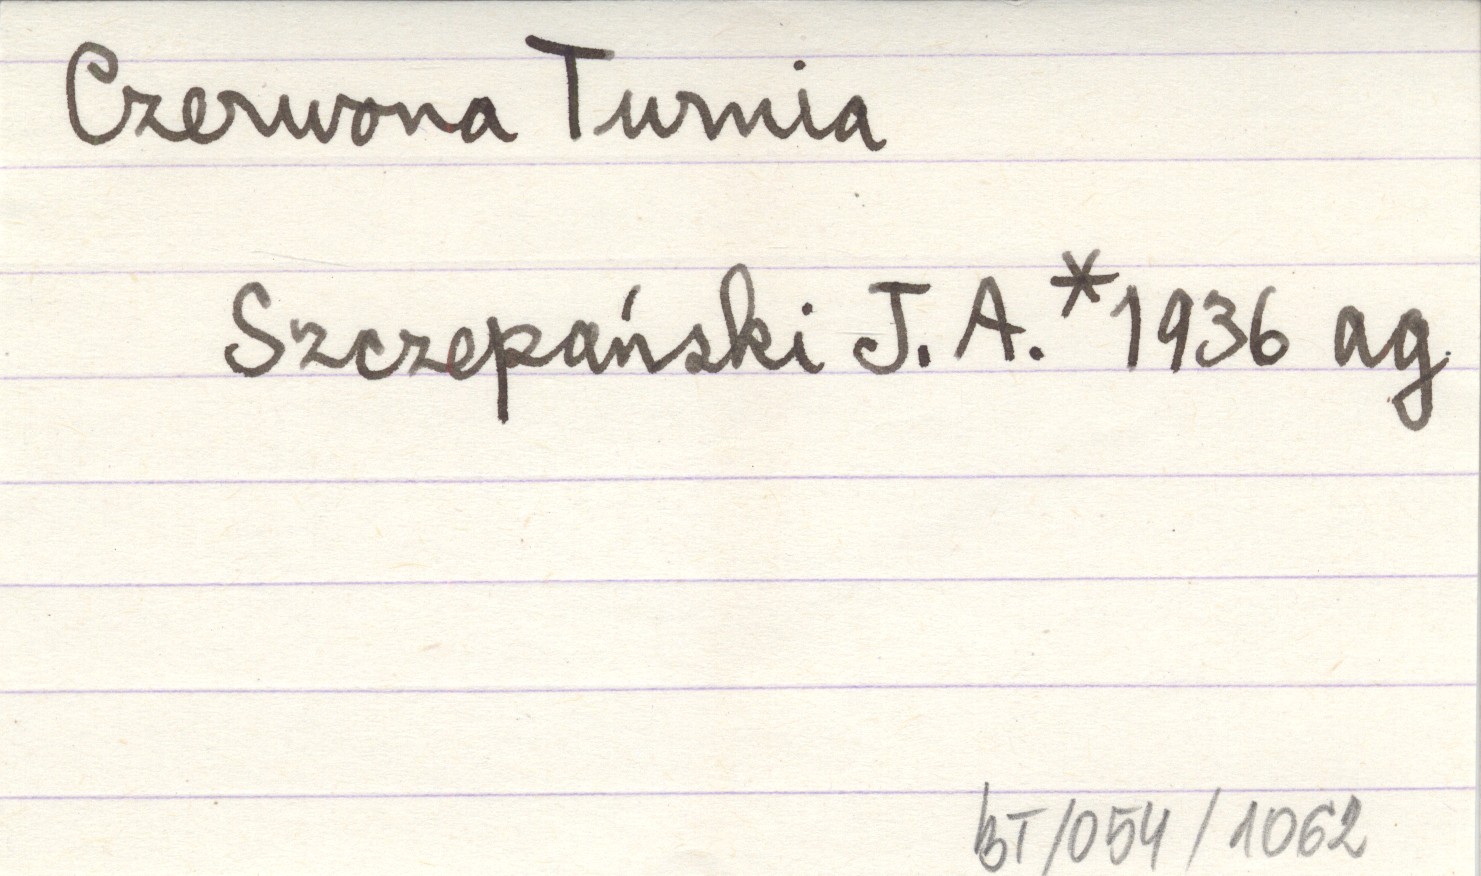 Czerwona Turnia
Szczepański J. A.* 1936 ag.
BT/054/1062